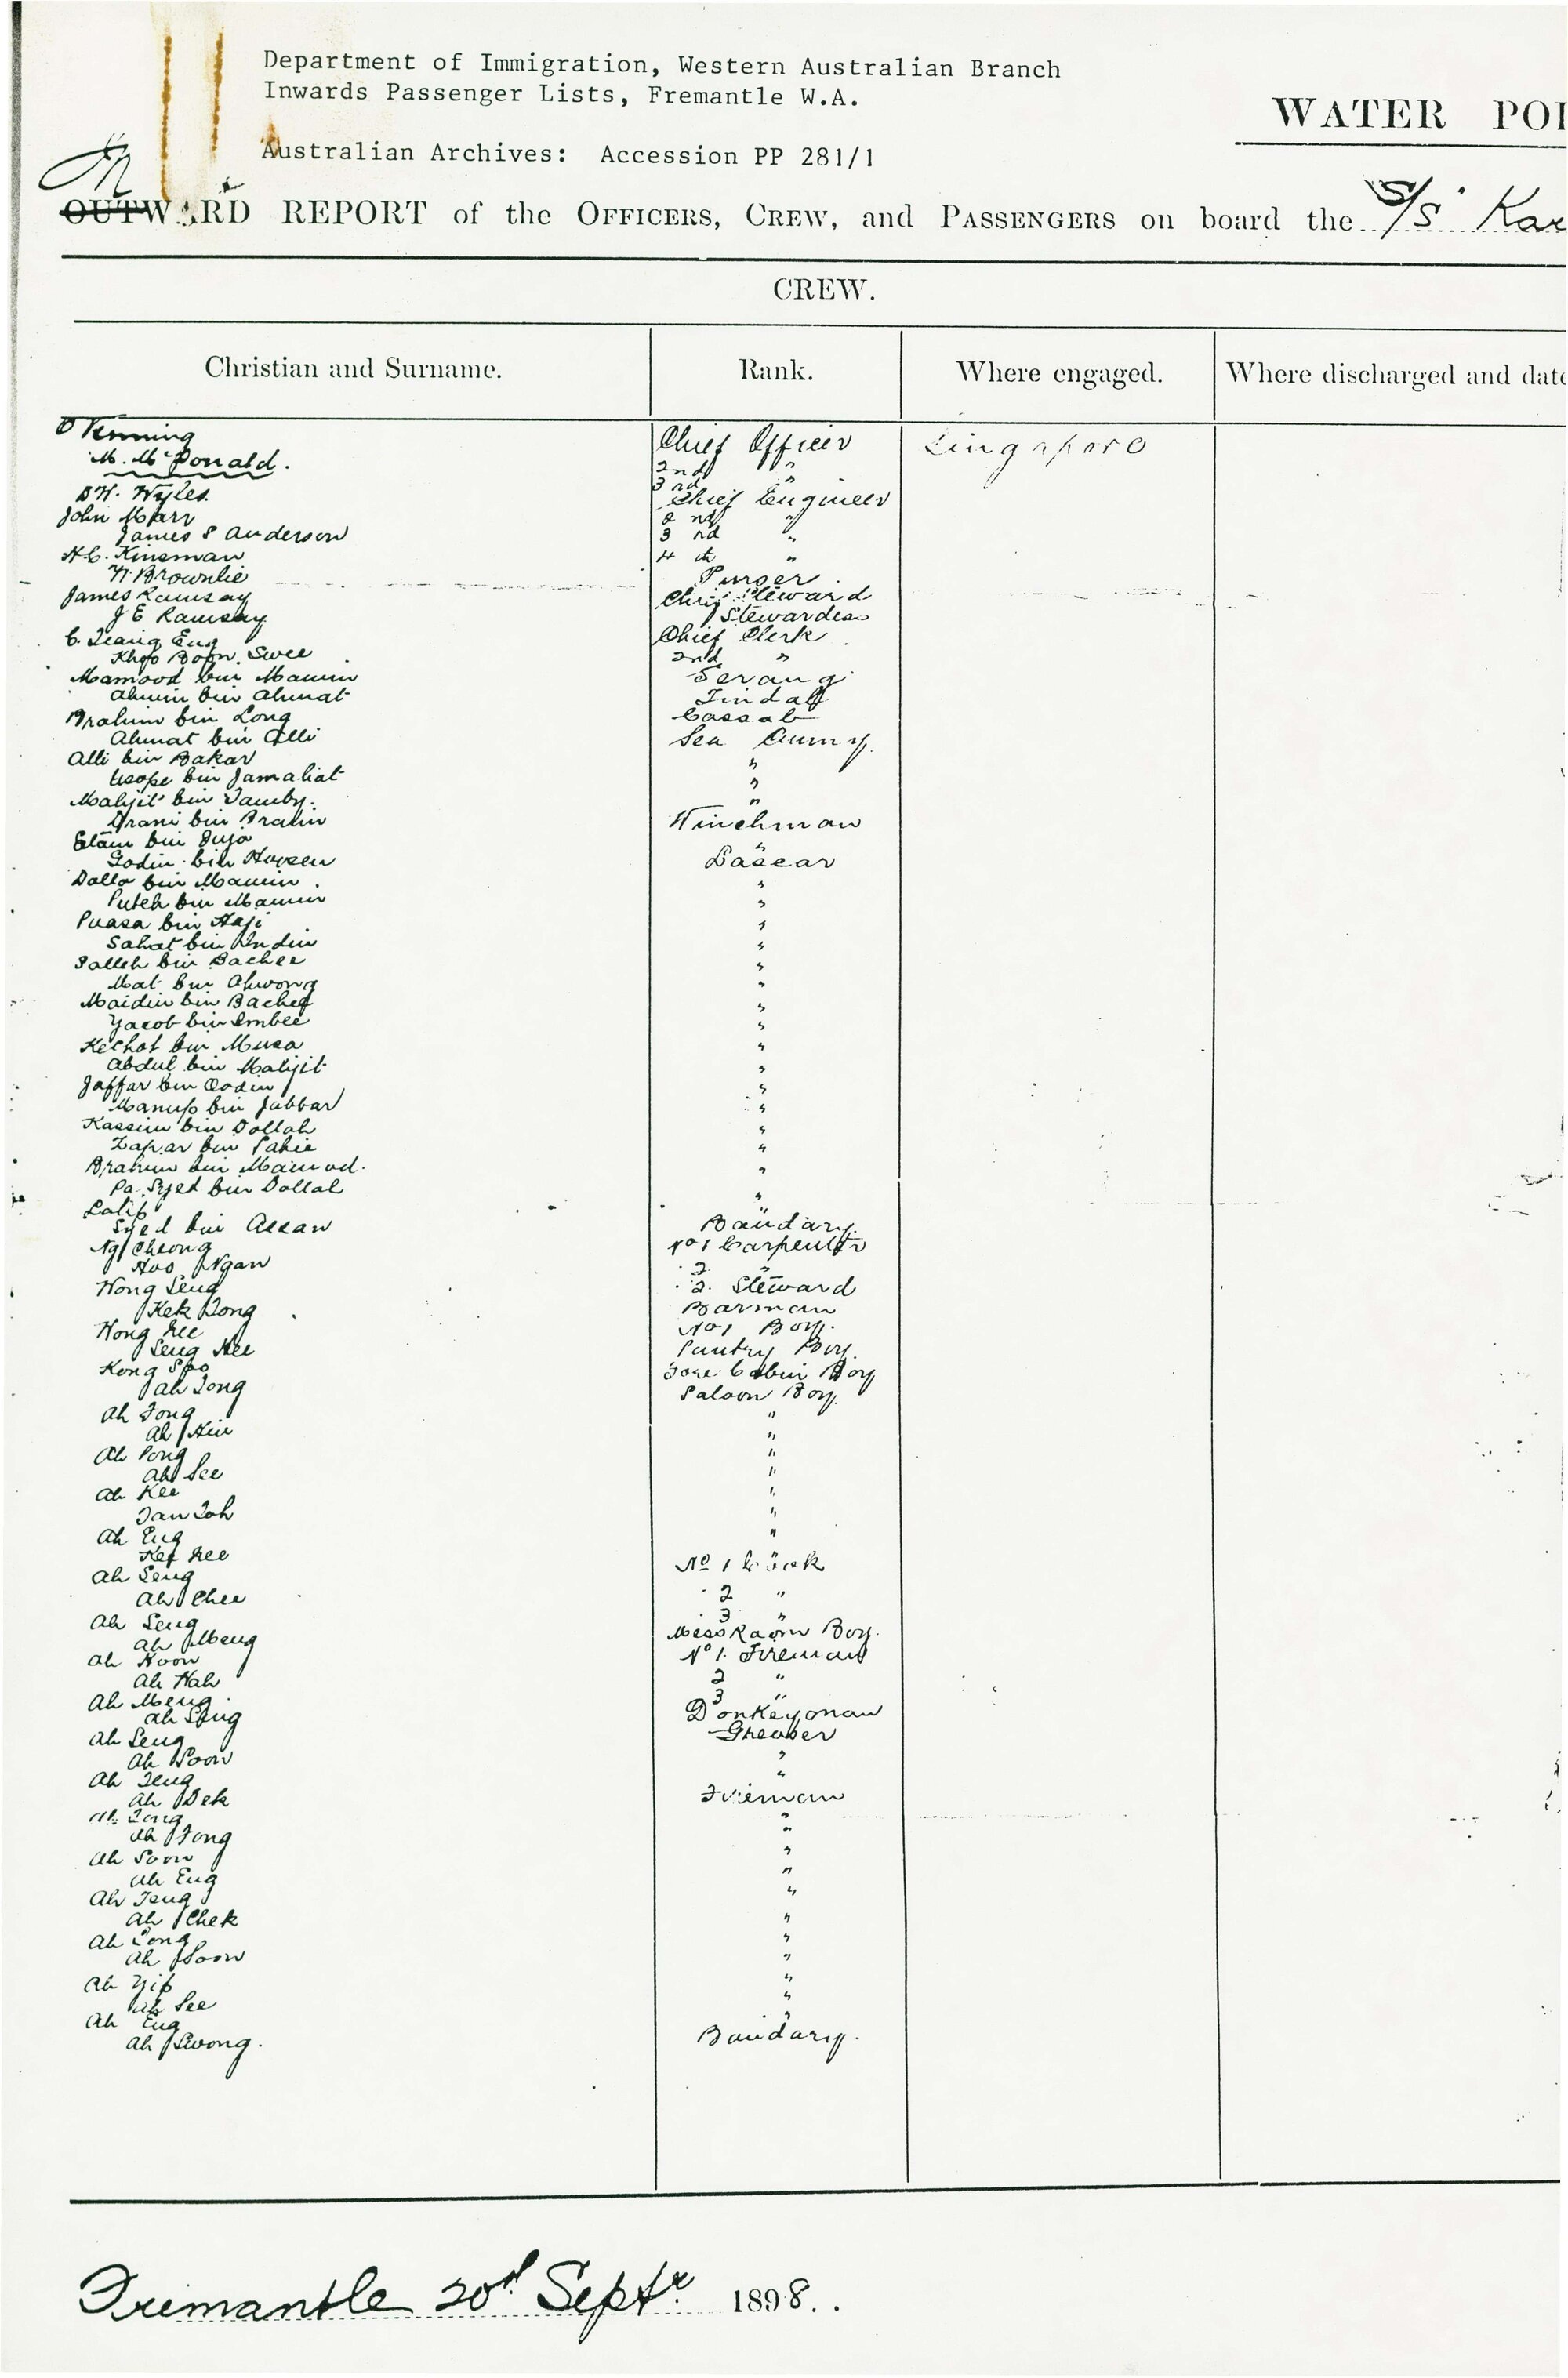 Department of Immigration, Western Australian Branch
Inwards Passenger Lists, Fremantle W.A.
WATER POI
Australian Archives: Accession PP 281/1
In
OUTWARD REPORT of the OFFICERS, CREW, and PASSENGERS on board the S/S Kar
CREW.
Christian and Surname. Rank. Where engaged. Where discharged and date
Chief Officer Singapore
M. McDonald. 2nd "
3rd "
D H. Wyles Chief Engineer
John Marr 2nd "
James S Anderson 3rd "
H.C. Kinsman 4th "
W. Brownlie Purser
James Ramsay Chief Steward
J E Ramsay Stewardess
C. Teang Eng Chief Clerk
Khoo Boon Swee 2nd "
Mamood bin Mamin Serang
Ahmin bin Ahmat Tindal
Brahim bin Long Cassab
Ahmat bin Alli Sea Cunny
Alli bin Bakar "
Usope bin Jamaliat "
Mahjit bin Tamby. "
Drani bin Brahin Winchman
Etam bin Jujo "
Godin bin Hoosen Lascar
Dollo bin Mamin. "
Puteh bin Mamin "
Puasa bin Haji "
Sahat bin Indin "
Salleh bin Bachee "
Mat bin Ahwong "
Maidin bin Bachee "
Yacob bin Embee "
Kechot bin Musa "
Abdul bin Mahjit "
Jaffar bin Dodin "
Manup bin Jabbar "
Kassim bin Dollah "
Zapar bin Pahie "
Brahim bin Mamood. "
Pa. Syed bin Dollah "
Latip "
Syed bin Assan Bandary.
Ng Cheong No 1 Carpenter
Hoo Ngan 2 "
Wong Seng 2. Steward
Kek Tong Barman
Wong Kee No 1 Boy.
Seng Hee Pantry Boy.
Kong Soo Fore Cabin Boy
Ah Tong Saloon Boy.
Ah Fong "
Ah Hin "
Ah Pong "
Ah See "
Ah Kee "
Tan Toh "
Ah Eng "
Kee Kee No 1 Cook
Ah Seng
Ah Chee 2 "
Ah Seng 3 "
Ah Meng Mess Room Boy.
Ah Koon No 1. Fireman
Ah Wah 2 "
Ah Meng 3 "
Ah Sing Donkeyman
Ah Seng Greaser
Ah Soon "
Ah Teng "
Ah Dek Fireman
Ah Tong "
Ah Fong "
Ah Soon "
Ah Eng "
Ah Teng "
Ah Chek "
Ah Long "
Ah Soon "
Ah Yip "
Ah See "
Ah Eng "
Ah Swong. Bandary.
Fremantle 20th Septr. 1898.